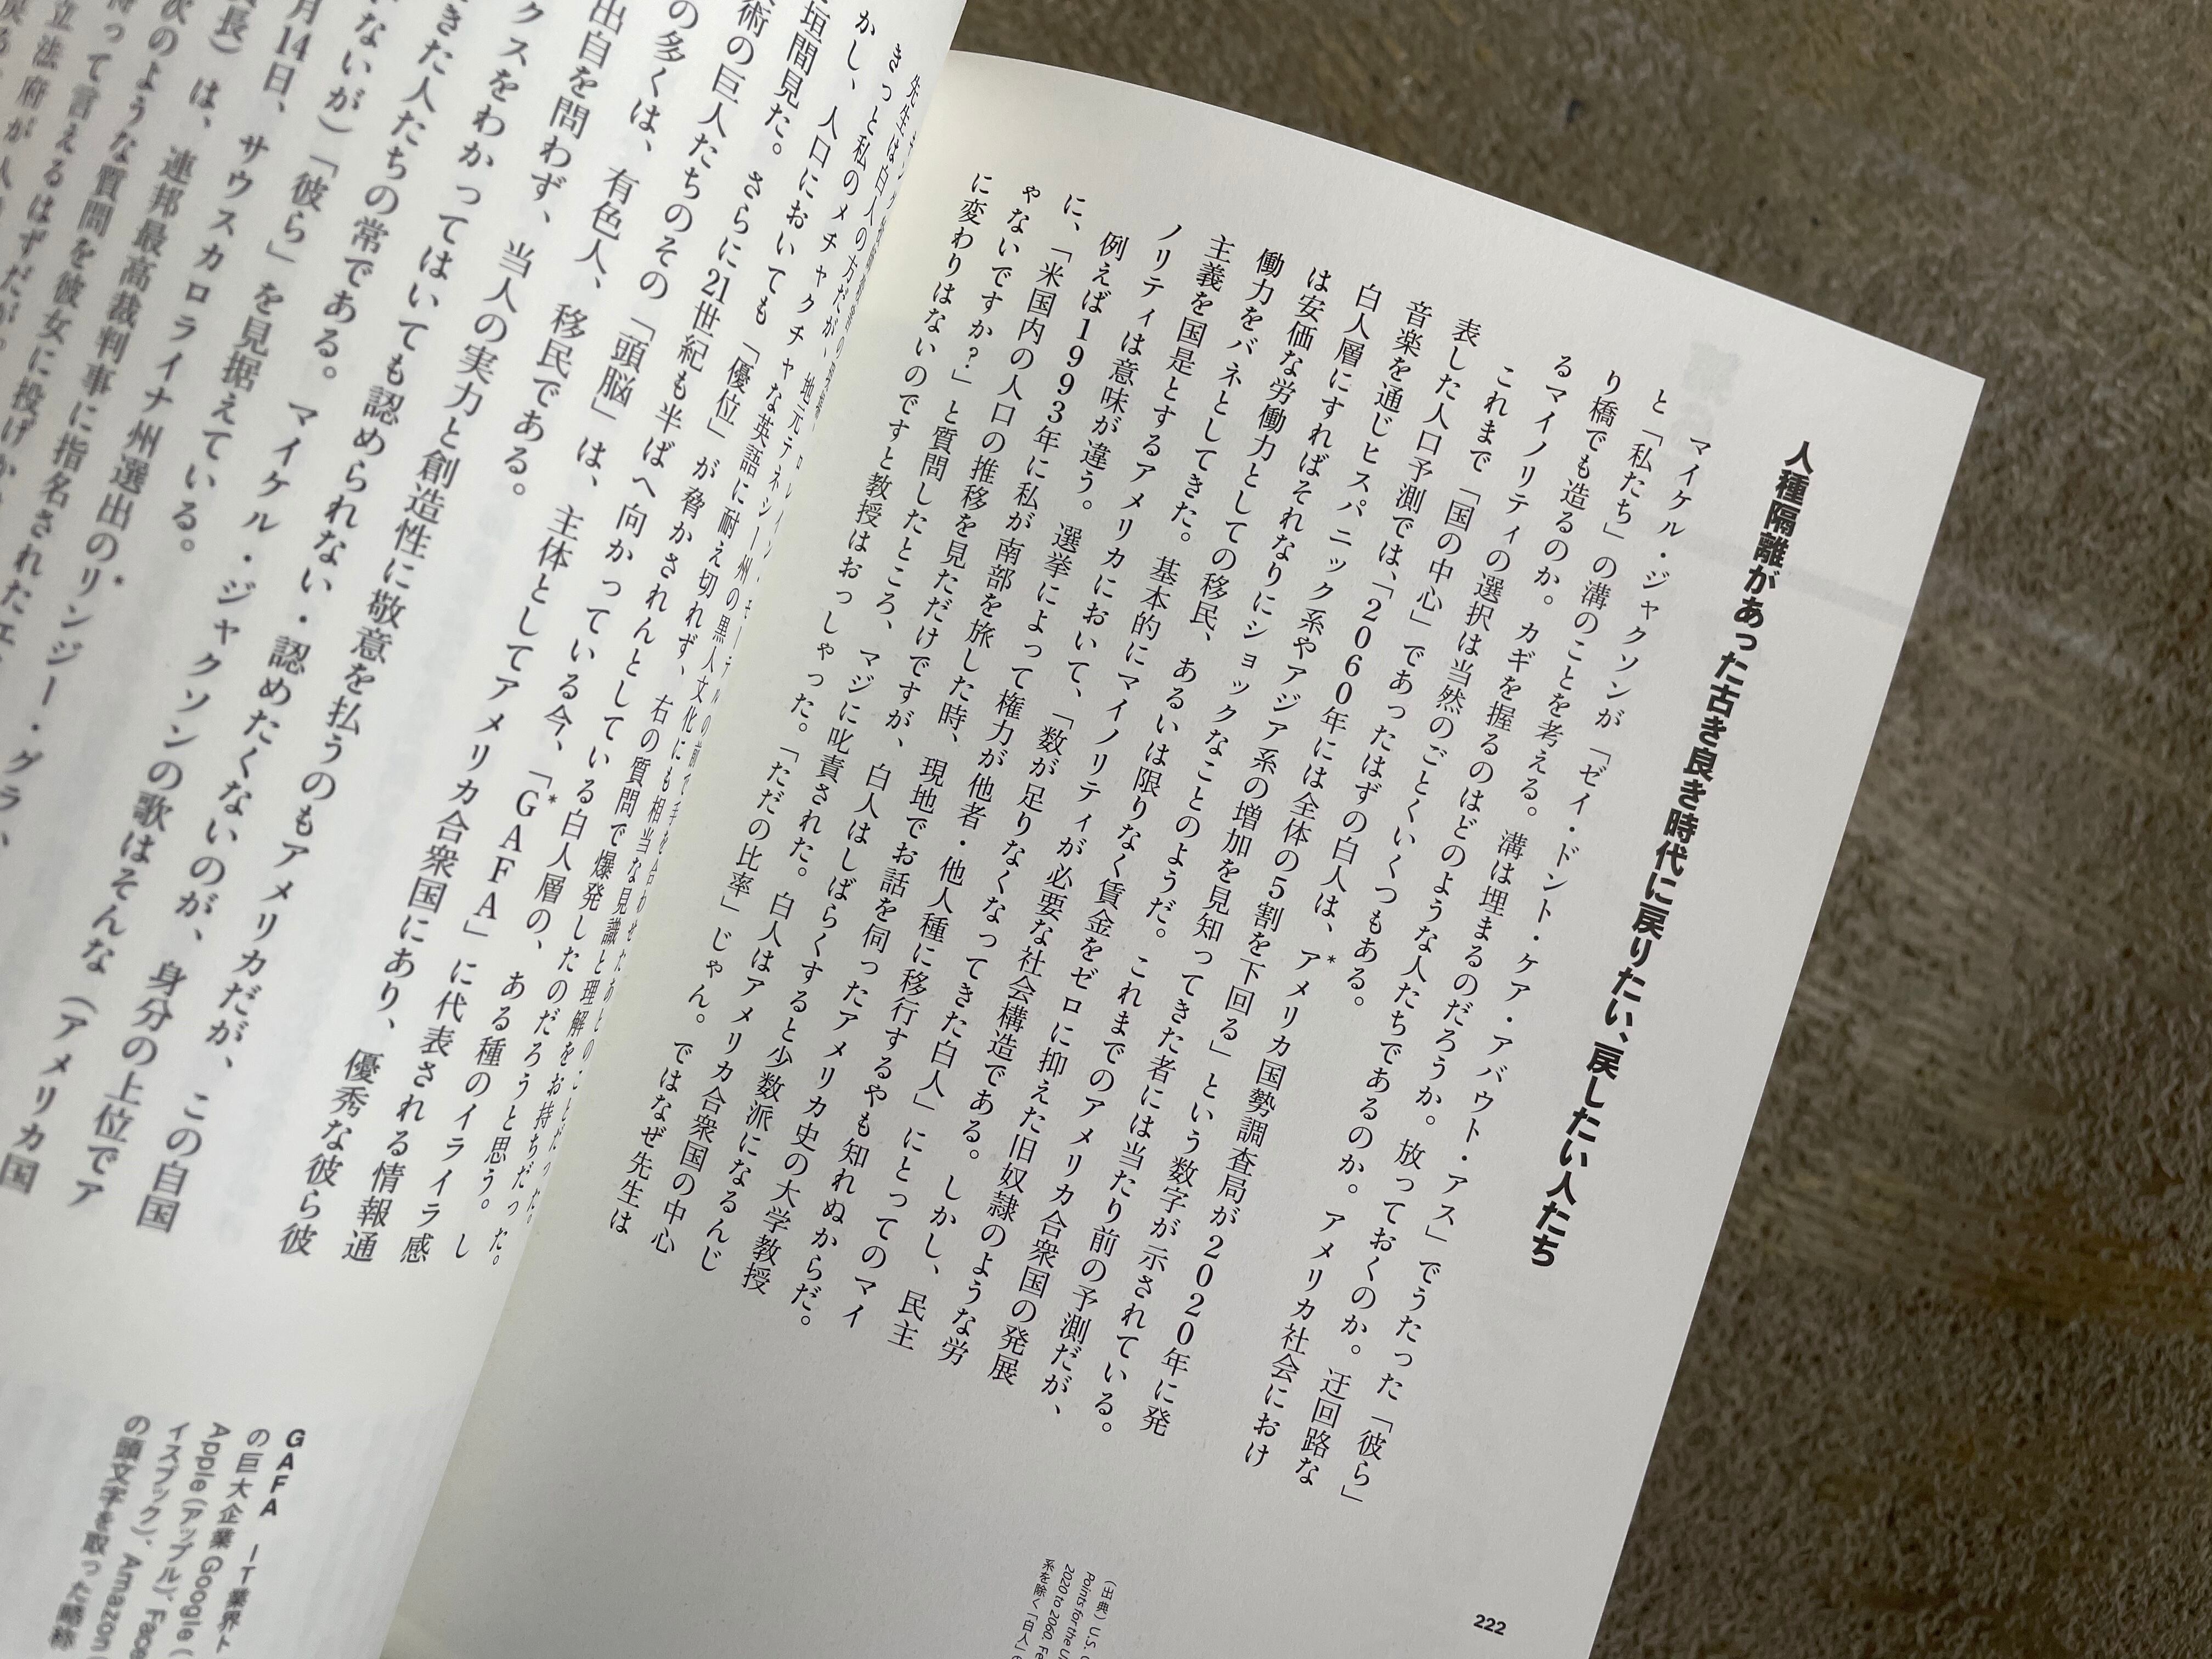 人種隔離があった古き良き時代に戻りたい、戻したい人たち
マイケル・ジャクソンが「ゼイ・ドント・ケア・アバウト・アス」でうたった「彼ら」
と「私たち」の溝のことを考える。溝は埋まるのだろうか。放っておくのか。迂回路な
り橋でも造るのか。カギを握るのはどのような人たちであるのか。アメリカ社会におけ
るマイノリティの選択は当然のごとくいくつもある。
これまで「国の中心」であったはずの白人は、*アメリカ国勢調査局が2020年に発
表した人口予測では、「2060年には全体の5割を下回る」という数字が示されている。
音楽を通じヒスパニック系やアジア系の増加を見知ってきた者には当たり前の予測だが、
白人層にすればそれなりにショックなことのようだ。これまでのアメリカ合衆国の発展
は安価な労働力としての移民、あるいは限りなく賃金をゼロに抑えた旧奴隷のような労
働力をバネとしてきた。基本的にマイノリティが必要な社会構造である。しかし、民主
主義を国是とするアメリカにおいて、「数が足りなくなってきた白人」にとってのマイ
ノリティは意味が違う。選挙によって権力が他者・他人種に移行するやも知れぬからだ。
例えば1993年に私が南部を旅した時、現地でお話を伺ったアメリカ史の大学教授
に、「米国内の人口の推移を見ただけですが、白人はしばらくすると少数派になるんじ
ゃないですか?」と質問したところ、マジに叱責された。白人はアメリカ合衆国の中心
に変わりはないのですと教授はおっしゃった。「ただの比率」じゃん。ではなぜ先生は
(出典) U.S.
Points for the
2020 to 2060,
系を除く「白人」
222
先生は白人の方だが、地元テネシー州の黒人文化にも相当な見識と理解をお持ちだった。
きっと私のメチャクチャな英語に耐え切れず、右の質問で爆発したのだろうと思う。し
かし、人口においても「優位」が脅かされんとしている白人層の、ある種のイライラ感
垣間見た。さらに21世紀も半ばへ向かっている今、「*GAFA」に代表される情報通
術の巨人たちのその「頭脳」は、主体としてアメリカ合衆国にあり、優秀な彼ら彼
の多くは、有色人、移民である。
出自を問わず、当人の実力と創造性に敬意を払うのもアメリカだが、この自国
クスをわかってはいても認められない・認めたくないのが、身分の上位でア
きた人たちの常である。マイケル・ジャクソンの歌はそんな(アメリカ国
ないが)「彼ら」を見据えている。
月14日、サウスカロライナ州選出のリンジー・グラ
長)は、連邦最高裁判事に指名された
次のような質問を彼女に投げか
って言えるはずだが。
立法府が人
GAFA IT業界ト
の巨大企業 Google (
Apple (アップル)、Face
イスブック)、Amazon
の頭文字を取った略称